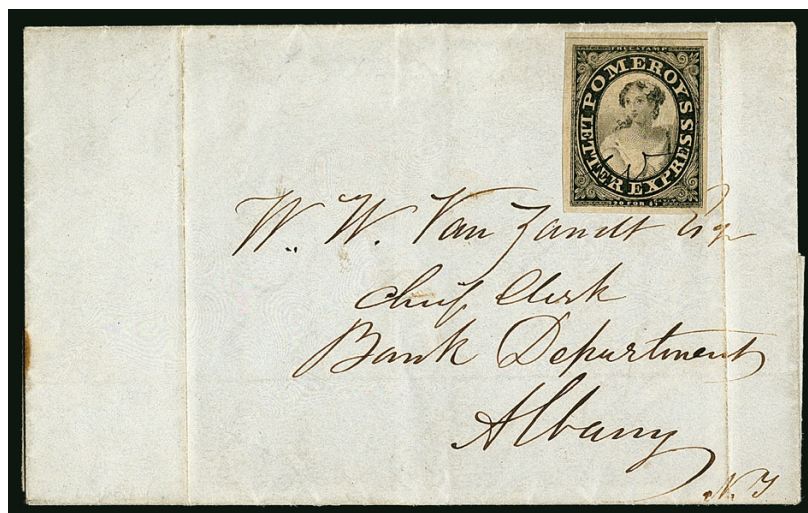 FREE STAMP
POMEROY'S
LETTER EXPRESS
W. W. Van Zandt Esqr
Chief Clerk
Bank Department
Albany
N.Y